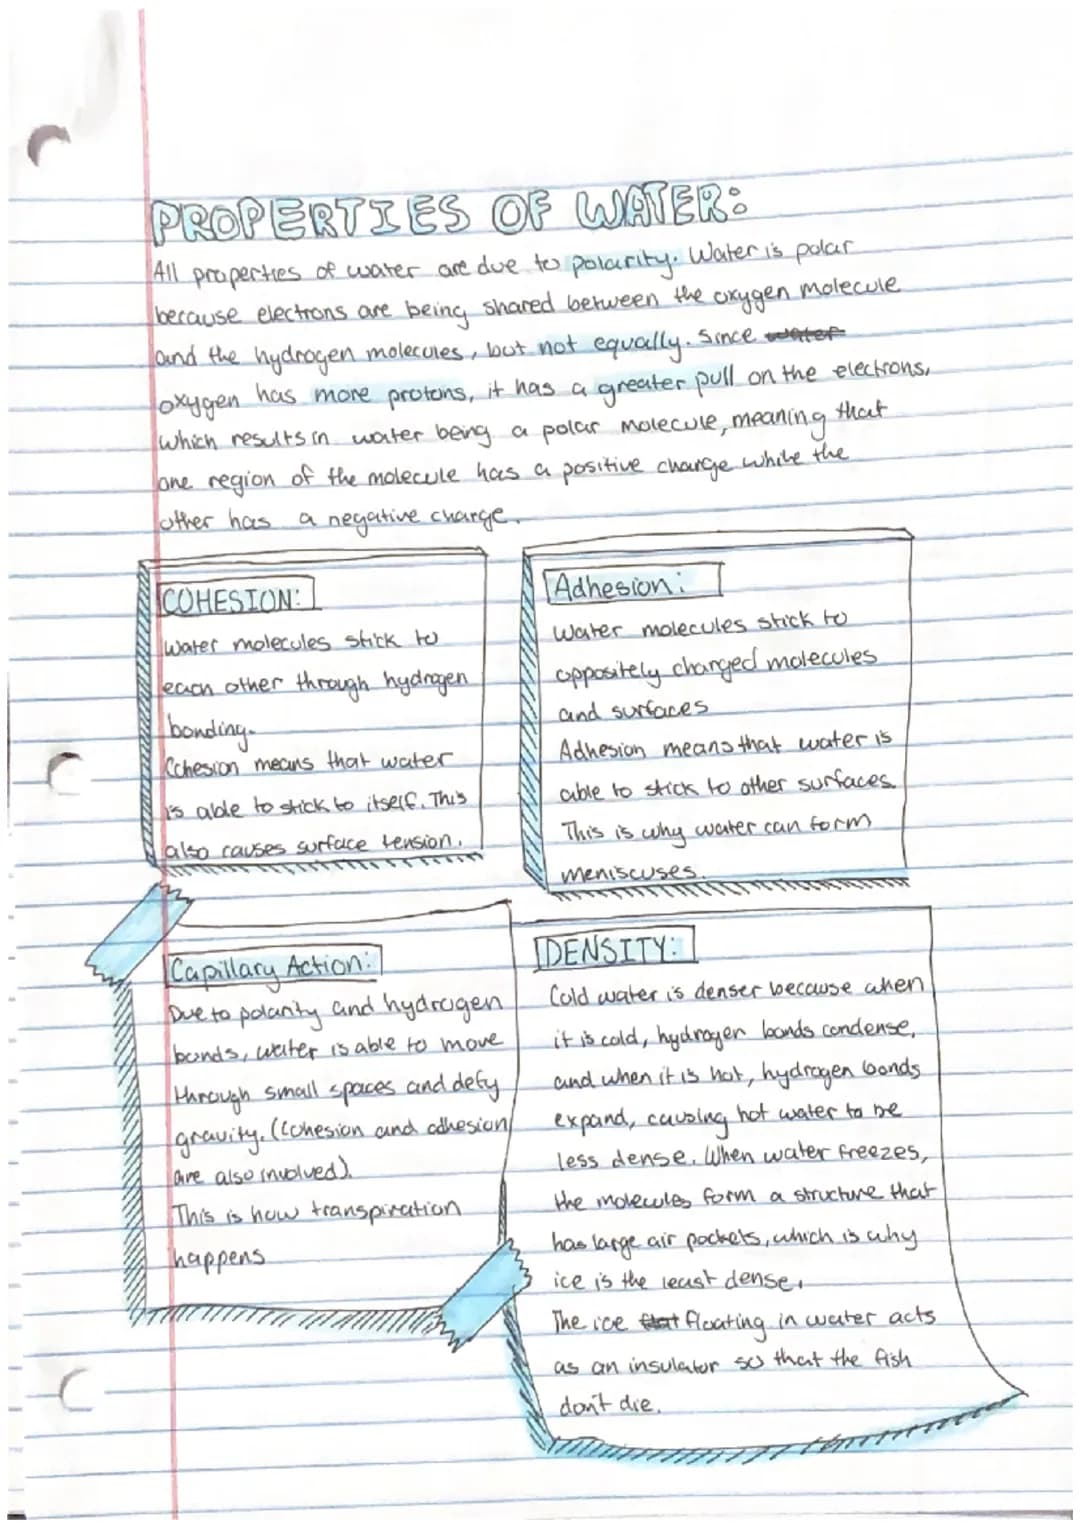 PROPERTIES OF WATER:
All properties of water are due to polarity. Water is polar
because electrons are being shared between the oxygen molecule
and the hydrogen molecules, but not equally. Since water
oxygen has more protons, it has a greater pull on the electrons,
which results in water being a polar molecule, meaning that
one region of the molecule has a positive charge while the
other has a negative charge.
COHESION:
Water molecules stick to
each other through hydrogen
bonding.
Cohesion means that water
is able to stick to itself. This
also causes surface tension.
Adhesion:
Water molecules stick to
oppositely charged molecules
and surfaces
Adhesion means that water is
able to stick to other surfaces.
This is why water can form
meniscuses.
Capillary Action:
Due to polarity and hydrogen
bonds, water is able to move
through small spaces and defy
gravity. (cohesion and adhesion
are also involved).
This is how transpiration
happens
DENSITY:
Cold water is denser because when
it is cold, hydrogen bonds condense,
and when it is hot, hydrogen bonds
expand, causing hot water to be
less dense. When water freezes,
the molecules form a structure that
has large air pockets, which is why
ice is the least dense.
The ice flat floating in water acts
as an insulator so that the fish
don't die.